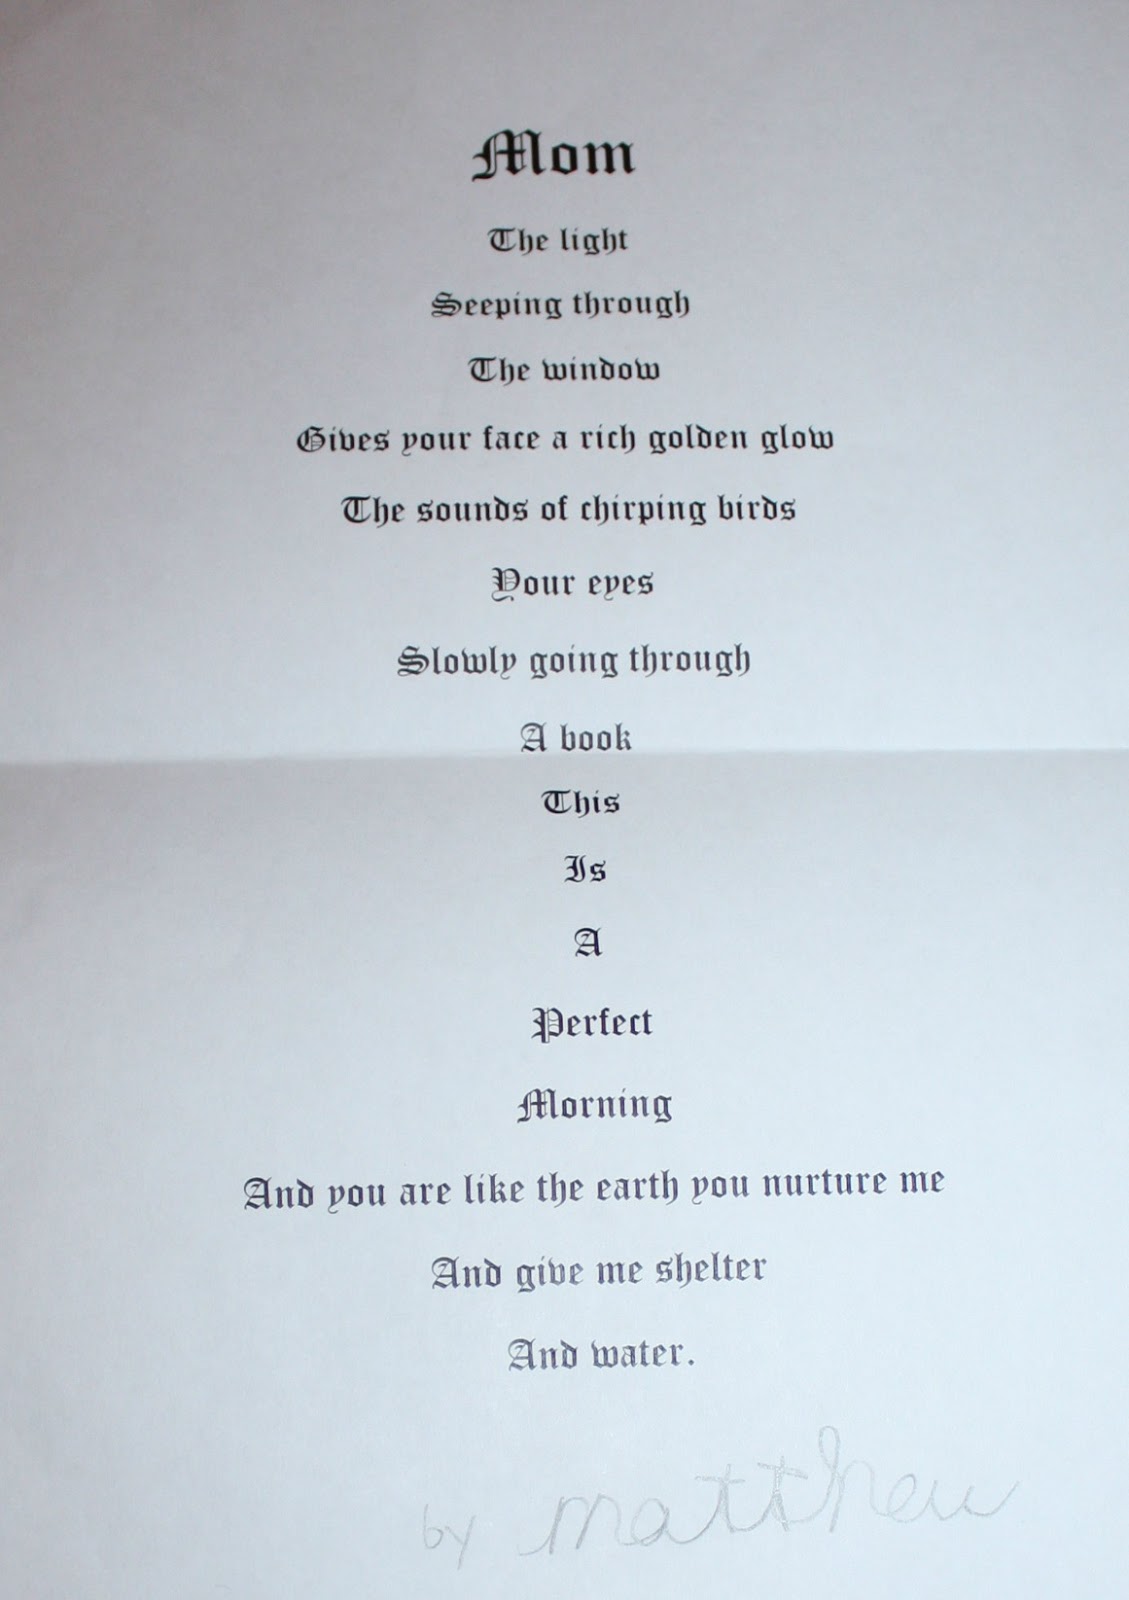 Mom
The light
Seeping through
The window
Gives your face a rich golden glow
The sounds of chirping birds
Your eyes
Slowly going through
A book
This
Is
A
Perfect
Morning
And you are like the earth you nurture me
And give me shelter
And water.
by matthew